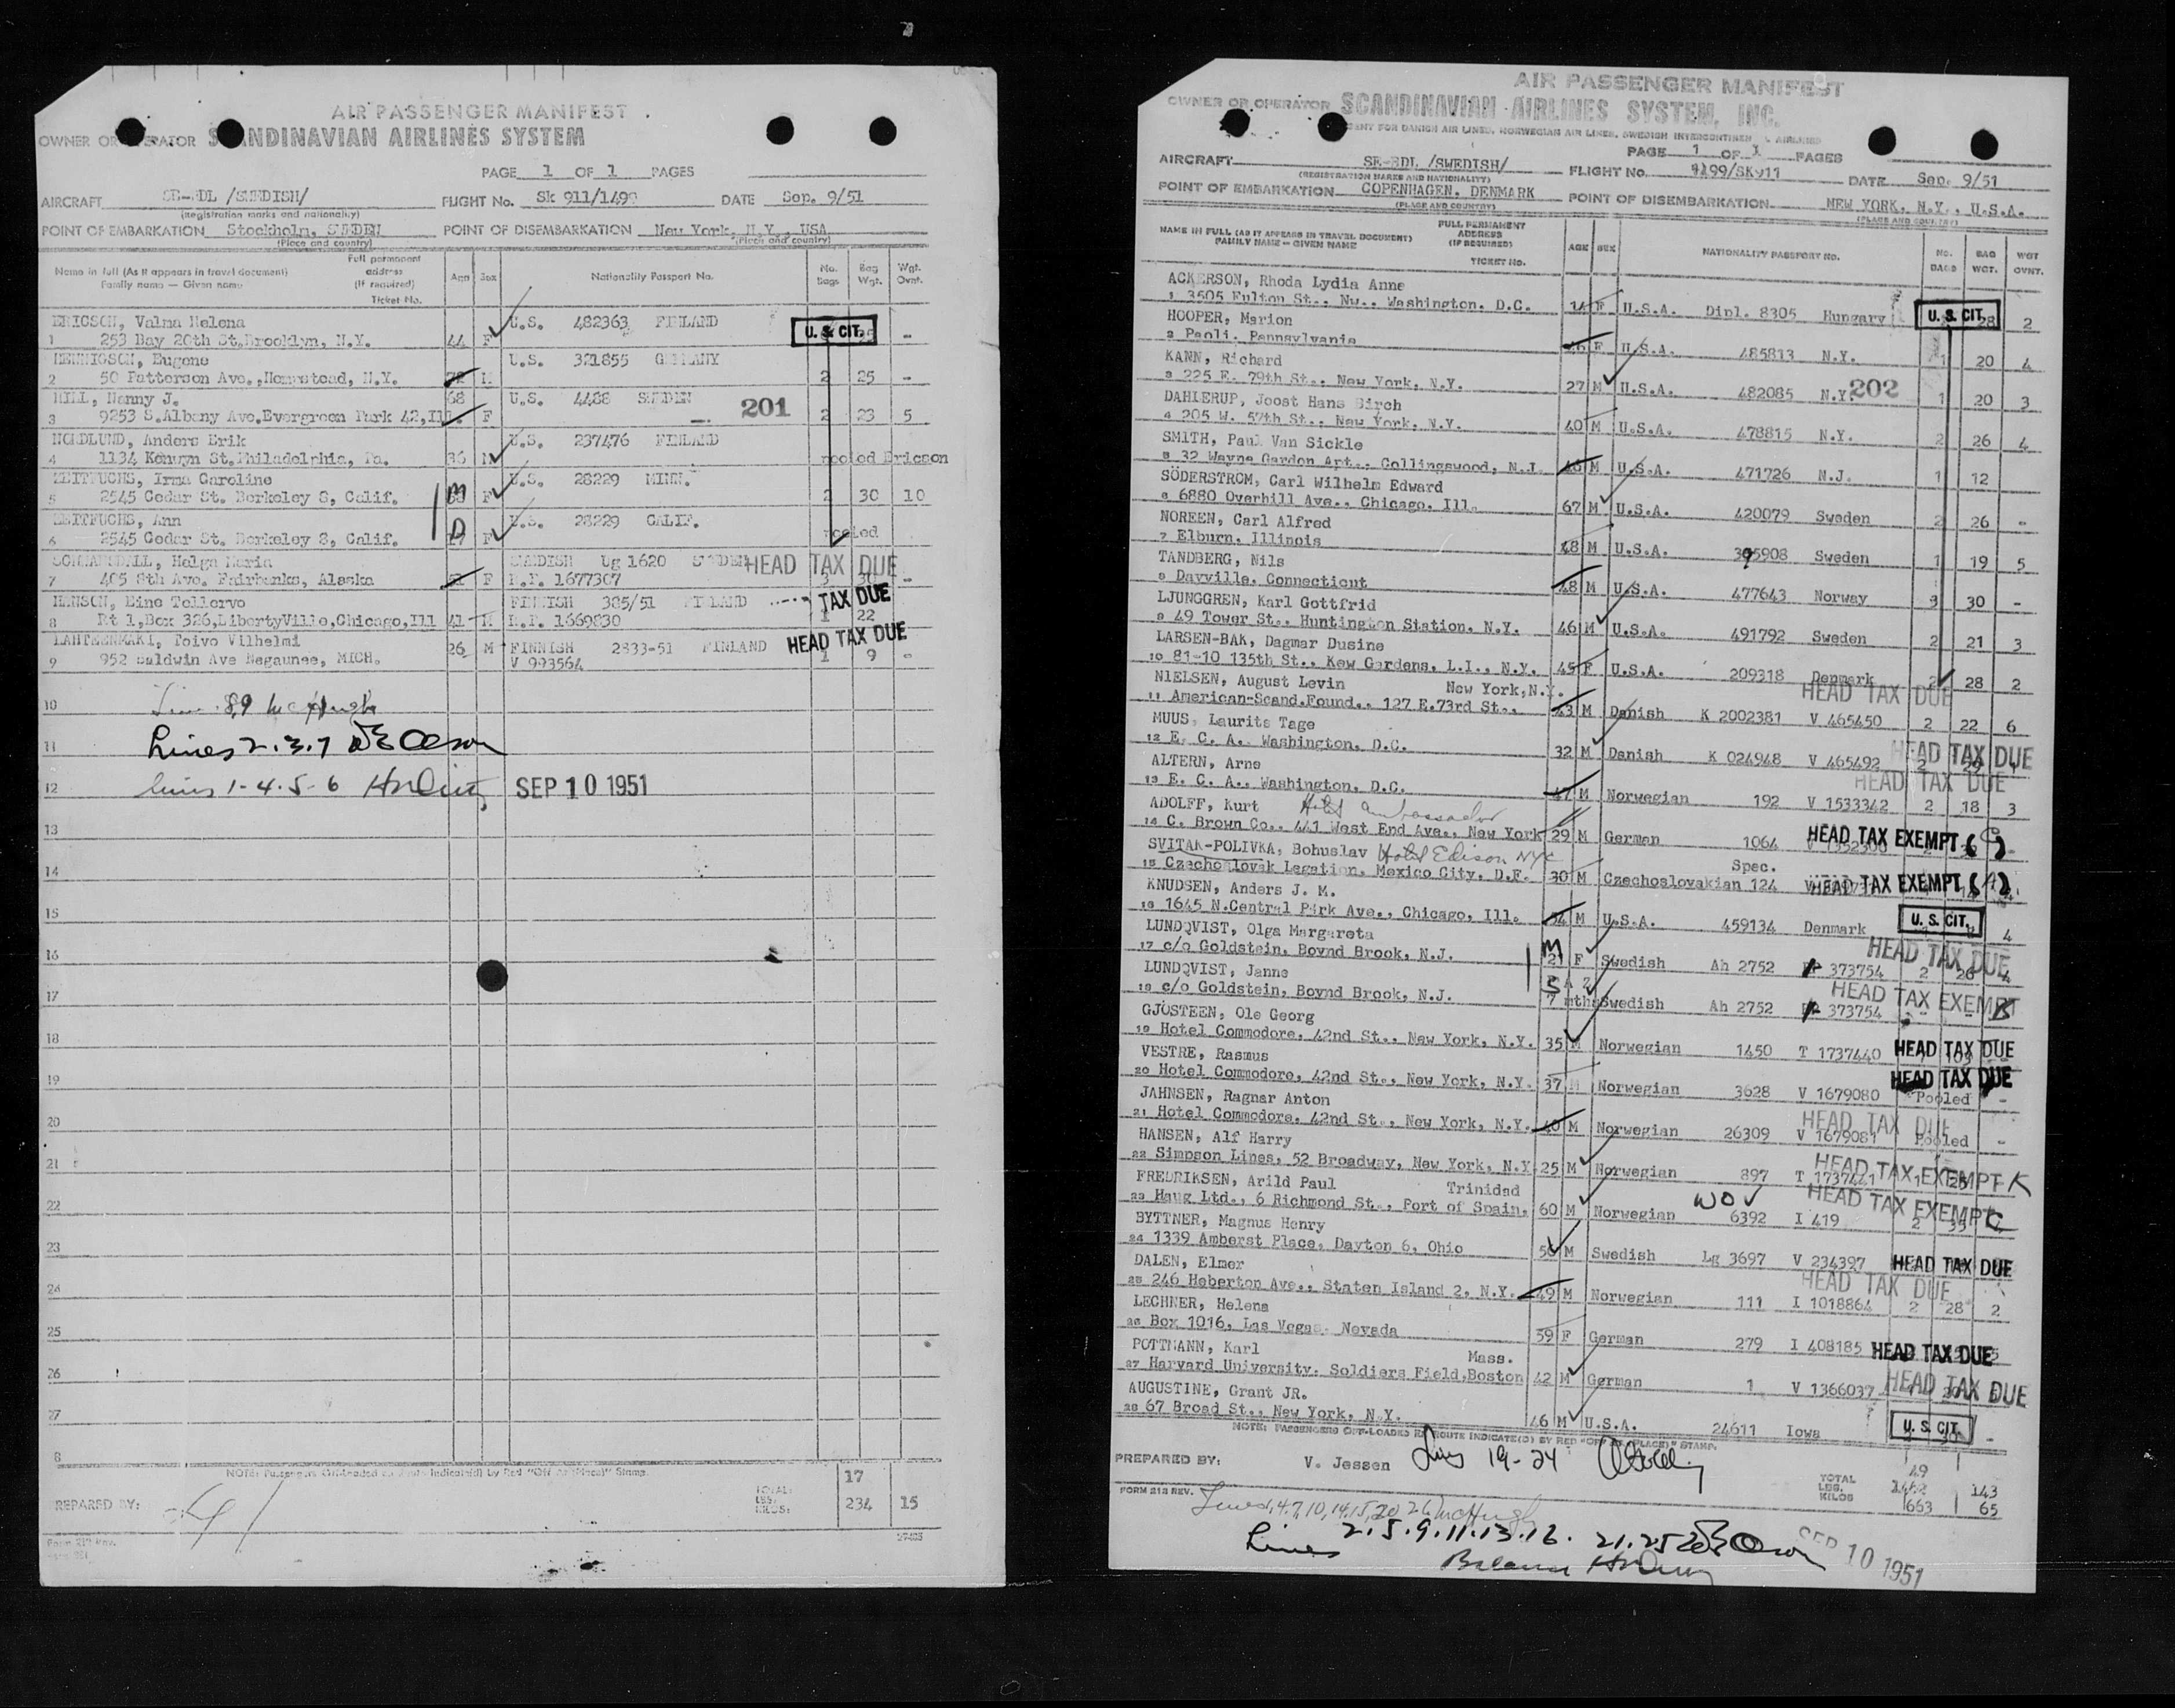 AIR PASSENGER MANIFEST
OWNER OR OPERATOR SCANDINAVIAN AIRLINES SYSTEM
PAGE 1 OF 1 PAGES
AIRCRAFT SE-BDL /SWEDISH/ FLIGHT No. Sk 911/1499 DATE Sep. 9/51
(Registration marks and nationality)
POINT OF EMBARKATION Stockholm, SWEDEN POINT OF DISEMBARKATION New York, N.Y., USA
(Place and country) (Place and country)
Name in full (As it appears in travel document) Family name — Given name Full permanent address (If required) Ticket No. Age Sex Nationality Passport No. No. Bags Bag Wgt. Wgt. Ovnt.
ERICSON, Valma Helena U.S. 482363 FINLAND U. S. CIT.
1 253 Bay 20th St, Brooklyn, N.Y. 44 F -
HENNIGSON, Eugene U.S. 321855 GERMANY
2 50 Patterson Ave., Hempstead, N.Y. M 2 25 -
HILL, Nanny J. 68 U.S. 4488 SWEDEN 201
3 9253 S.Albany Ave.Evergreen Park 42,Ill. F 2 23 5
NORDLUND, Anders Erik U.S. 237476 FINLAND
4 1134 St.Philadelphia, Pa. 36 M pooled Ericson
ZEITFUCHS, Irma Caroline U.S. 28229 MINN.
5 2545 Cedar St. Berkeley 8, Calif. M F 2 30 10
ZEITFUCHS, Ann U.S. 28229 CALIF.
6 2545 Cedar St. Berkeley 8, Calif. D F pooled
Helga Maria SWEDISH Ug 1620 SWEDEN HEAD TAX DUE
7 405 8th Ave. Fairbanks, Alaska F R.P. 1677307 3 30 -
HANSON, Eine Tellervo FINNISH 385/51 FINLAND TAX DUE
8 Rt 1,Box 326,LibertyVille,Chicago,Ill 41 R.P. 1669830 1 22
LAHTEENMAKI, Toivo Vilhelmi FINNISH 2833-51 FINLAND HEAD TAX DUE
9 952 Baldwin Ave Negaunee, MICH. 26 M V 993564 1 9 -
10 8,9 McHugh
11 Lines 2.3.7 Olson
12 lines 1-4.5-6 SEP 10 1951
13
14
15
16
17
18
19
20
21
22
23
24
25
26
27
8
NOTE: Passengers Off-loaded en route Indicate(d) by Red "Off At (Place)" Stamp.
PREPARED BY: TOTAL: LBS. KILOS: 17 234 15
AIR PASSENGER MANIFEST
OWNER OR OPERATOR SCANDINAVIAN AIRLINES SYSTEM, INC.
AGENT FOR DANISH AIR LINES, NORWEGIAN AIR LINES, SWEDISH INTERCONTINENTAL AIRLINES
PAGE 1 OF 1 PAGES
AIRCRAFT SE-BDL /SWEDISH/ FLIGHT No. 1499/SK911 DATE Sep. 9/51
(REGISTRATION MARKS AND NATIONALITY)
POINT OF EMBARKATION COPENHAGEN, DENMARK POINT OF DISEMBARKATION NEW YORK, N.Y., U.S.A.
(PLACE AND COUNTRY) (PLACE AND COUNTRY)
NAME IN FULL (AS IT APPEARS IN TRAVEL DOCUMENT) FAMILY NAME — GIVEN NAME FULL PERMANENT ADDRESS (IF REQUIRED) TICKET NO. AGE SEX NATIONALITY PASSPORT NO. NO. BAGS BAG WGT. WGT OVNT.
ACKERSON, Rhoda Lydia Anne
1 3505 Fulton St., Nw., Washington, D.C. 14 F U.S.A. Dipl. 8305 Hungary U. S. CIT. 28 2
HOOPER, Marion
2 Paoli, Pennsylvania F U.S.A. 485813 N.Y. 1 20 4
KANN, Richard
3 225 E. 79th St., New York, N.Y. 27 M U.S.A. 482085 N.Y. 202 1 20 3
DAHLERUP, Joost Hans Birch
4 205 W. 57th St., New York, N.Y. 40 M U.S.A. 478815 N.Y. 2 26 4
SMITH, Paul Van Sickle
5 32 Wayne Garden Apt., Collingswood, N.J. M U.S.A. 471726 N.J. 1 12
SÖDERSTROM, Carl Wilhelm Edward
6 6880 Overhill Ave., Chicago, Ill. 67 M U.S.A. 420079 Sweden 2 26 -
NOREEN, Carl Alfred
7 Elburn, Illinois 48 M U.S.A. 395908 Sweden 1 19 5
TANDBERG, Nils
8 Dayville, Connecticut 48 M U.S.A. 477643 Norway 3 30 -
LJUNGGREN, Karl Gottfrid
9 49 Tower St., Huntington Station, N.Y. 46 M U.S.A. 491792 Sweden 2 21 3
LARSEN-BAK, Dagmar Dusine
10 81-10 135th St., Kew Gardens, L.I., N.Y. 45 F U.S.A. 209318 Denmark 2 28 2
NIELSEN, August Levin New York,N.Y. HEAD TAX DUE
11 American-Scand.Found., 127 E.73rd St., 43 M Danish K 2002381 V 465450 2 22 6
MUUS, Laurits Tage
12 E. C. A., Washington, D.C. 32 M Danish K 024948 V 465492 HEAD TAX DUE
ALTERN, Arne HEAD TAX DUE
13 E. C. A., Washington, D.C. 47 M Norwegian 192 V 1533342 2 18 3
ADOLFF, Kurt Hotel Ambassador
14 C. Brown Co., 441 West End Ave., New York 29 M German 1064 HEAD TAX EXEMPT
SVITAK-POLIVKA, Bohuslav Hotel Edison NYC
15 Czechoslovak Legation, Mexico City, D.F. 30 M Czechoslovakian Spec. 124 HEAD TAX EXEMPT
KNUDSEN, Anders J. M.
16 1645 N.Central Park Ave., Chicago, Ill. 54 M U.S.A. 459134 Denmark U. S. CIT. 4
LUNDQVIST, Olga Margareta
17 c/o Goldstein, Boynd Brook, N.J. M 21 F Swedish Ah 2752 373754 HEAD TAX DUE 2 20 4
LUNDQVIST, Janne
18 c/o Goldstein, Boynd Brook, N.J. S 7 mths Swedish Ah 2752 373754 HEAD TAX EXEMPT
GJÖSTEEN, Ole Georg
19 Hotel Commodore, 42nd St., New York, N.Y. 35 M Norwegian 1450 T 1737440 HEAD TAX DUE
VESTRE, Rasmus
20 Hotel Commodore, 42nd St., New York, N.Y. 37 M Norwegian 3628 V 1679080 HEAD TAX DUE Pooled -
JAHNSEN, Ragnar Anton
21 Hotel Commodore, 42nd St., New York, N.Y. 40 M Norwegian 26309 V 1679081 HEAD TAX DUE Pooled -
HANSEN, Alf Harry
22 Simpson Lines, 52 Broadway, New York, N.Y 25 M Norwegian 897 T 1737441 HEAD TAX EXEMPT K
FREDRIKSEN, Arild Paul Trinidad WOV
23 Haug Ltd., 6 Richmond St., Port of Spain, 60 M Norwegian 6392 I 419 HEAD TAX EXEMPT C
BYTTNER, Magnus Henry
24 1339 Amberst Place, Dayton 6, Ohio M Swedish Lg 3697 V 234397 HEAD TAX DUE
DALEN, Elmer HEAD TAX DUE
25 246 Heberton Ave., Staten Island 2, N.Y. 49 M Norwegian 111 I 1018864 2 28 2
LECHNER, Helena
26 Box 1016, Las Vegas, Nevada 39 F German 279 I 408185 HEAD TAX DUE
POTTMANN, Karl Mass.
27 Harvard University, Soldiers Field,Boston 42 M German 1 V 1366037 HEAD TAX DUE
AUGUSTINE, Grant JR.
28 67 Broad St., New York, N.Y. 46 M U.S.A. 24611 Iowa U. S. CIT. -
NOTE: PASSENGERS OFF-LOADED EN ROUTE INDICATE(D) BY RED "OFF AT (PLACE)" STAMP.
PREPARED BY: V. Jessen Lines 19-24
TOTAL 49
LBS. 1462 143
KILOS 663 65
FORM 212 REV. Lines 1,4,7,10,14,15,20 26 McHugh
Lines 2.5.9.11.13.16. 21.25 Olson
Balance SEP 10 1951